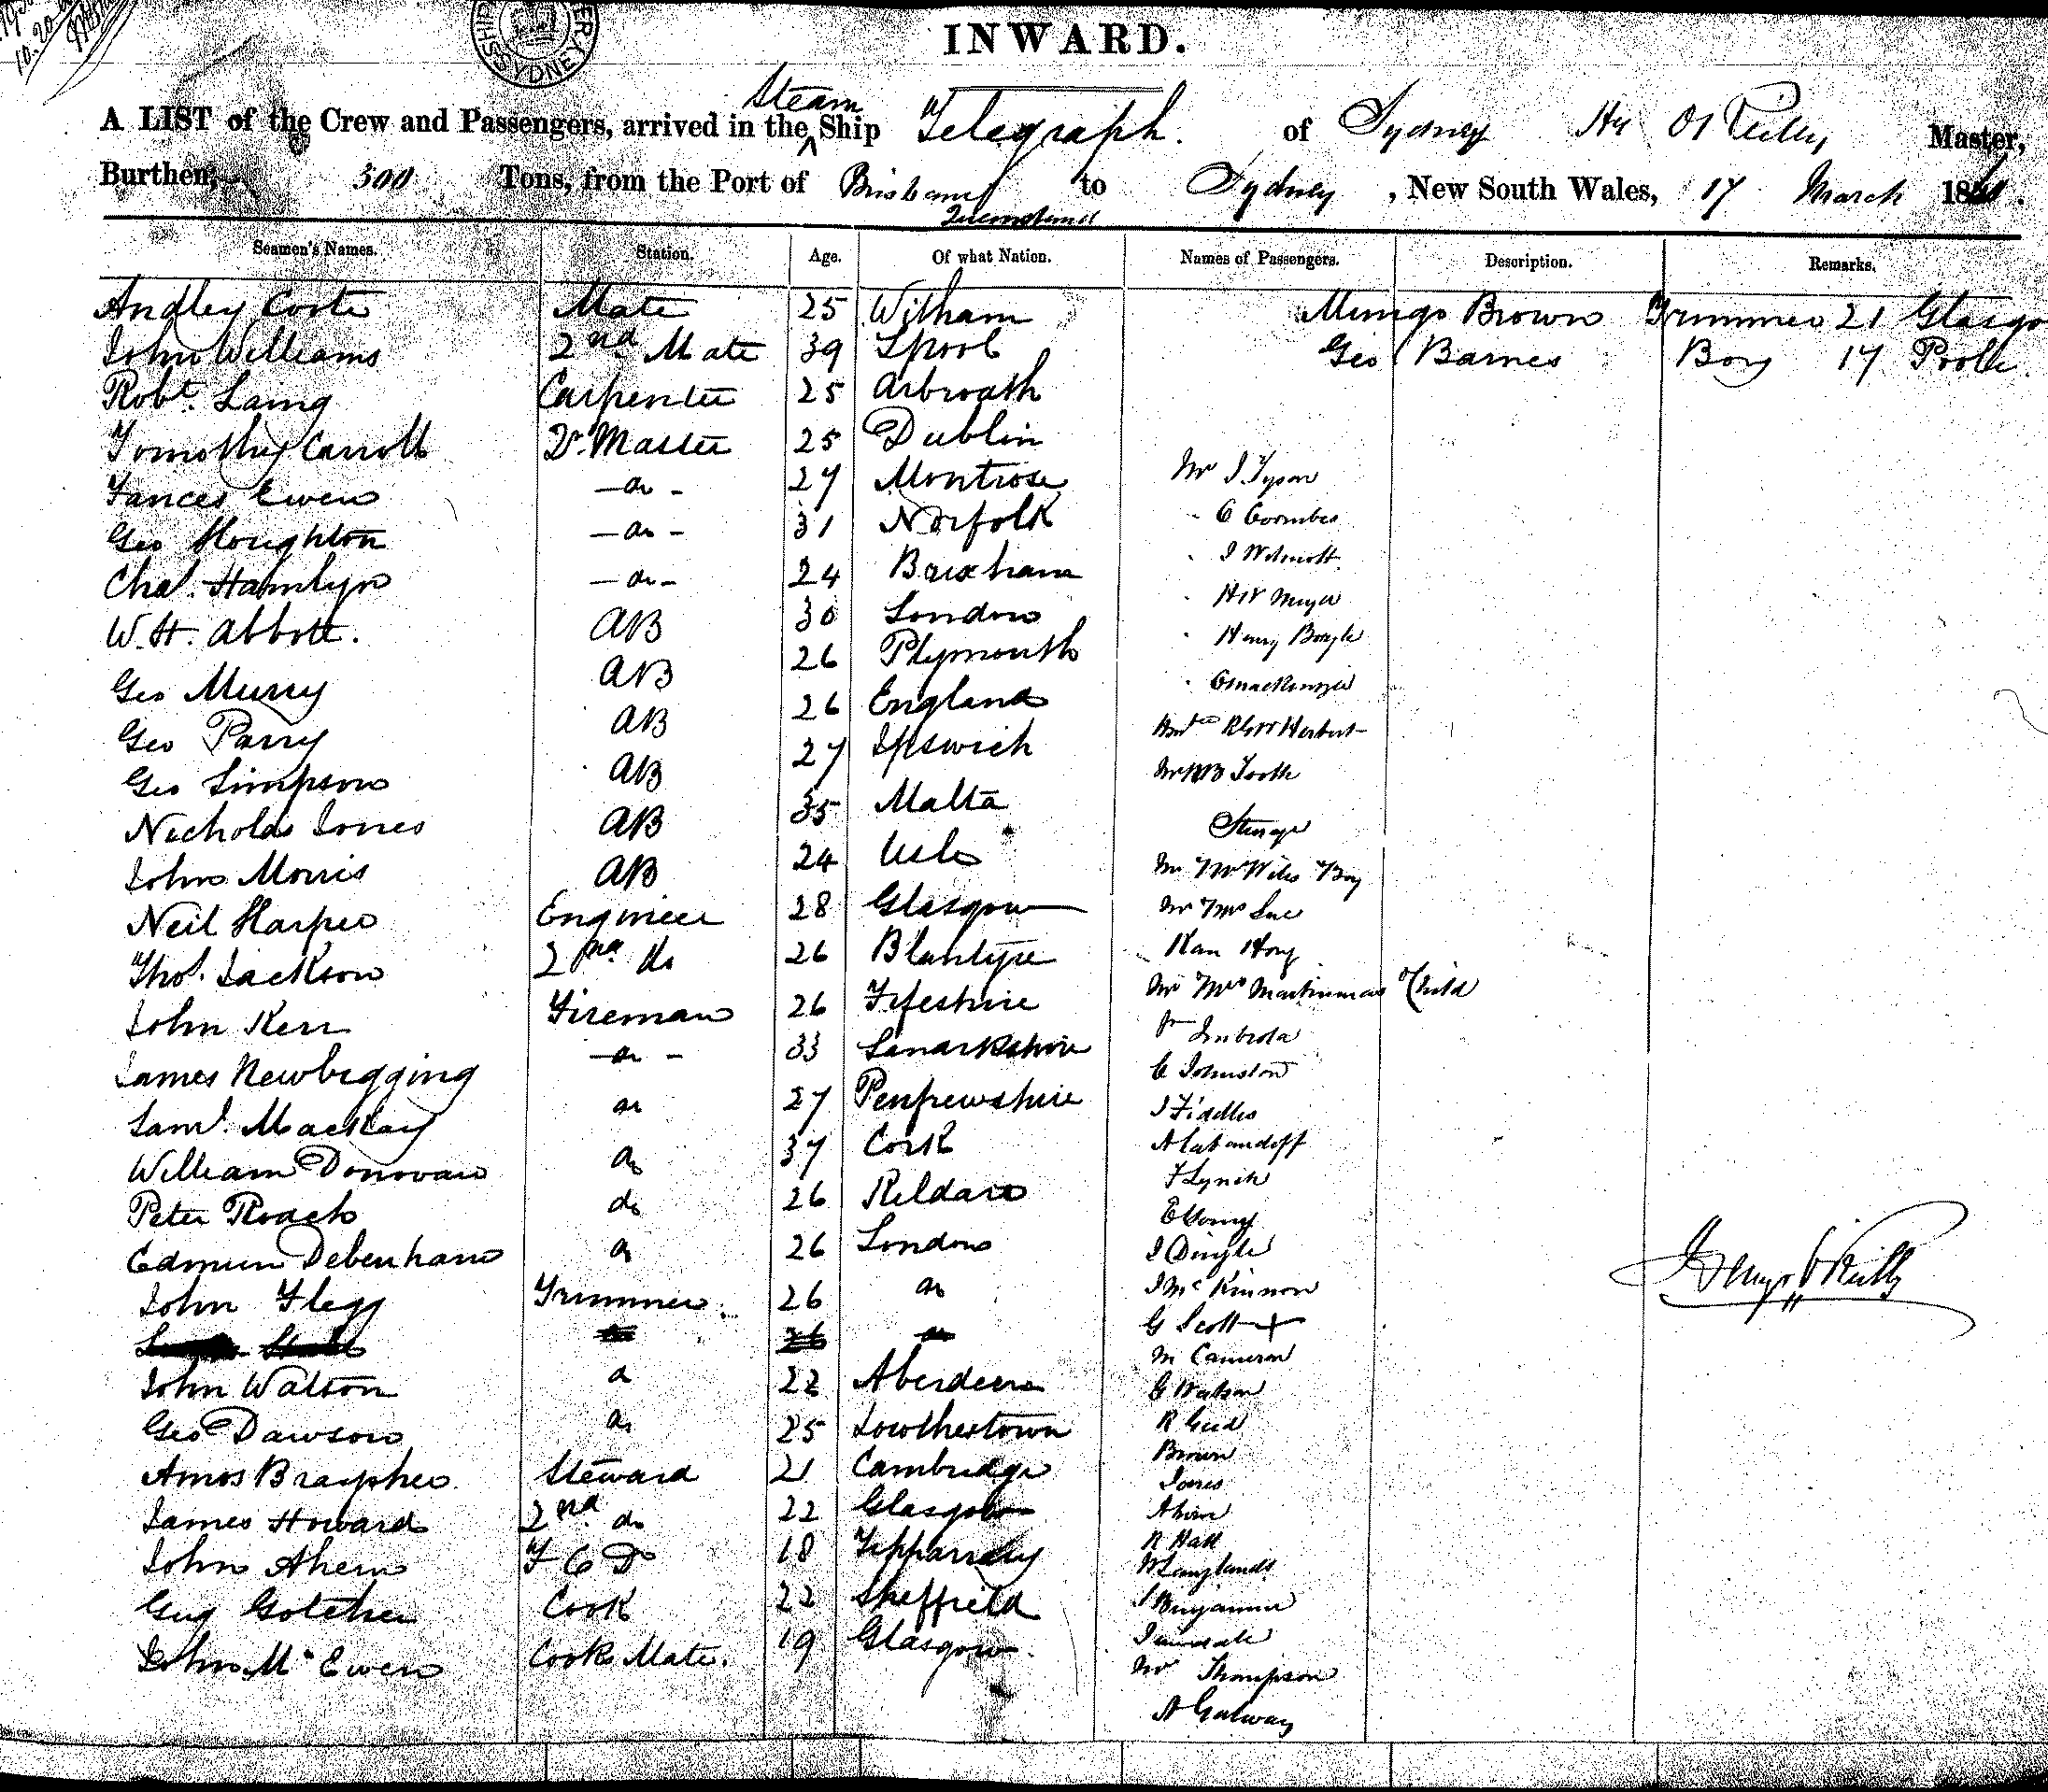 10.20
SHIP SYDNEY
INWARD.
Steam
A LIST of the Crew and Passengers, arrived in the ^ Ship Telegraph. of Sydney Hy O'Reilly Master,
Burthen, 500 Tons, from the Port of Brisbane to Sydney, New South Wales, 17 March 18
Queensland
Seamen's Names. Station. Age. Of what Nation. Names of Passengers. Description. Remarks.
Andley Coote Mate 25 Witham Mungo Brown Trimmer 21 Glasgo
John Williams 2nd Mate 39 Lpool Geo Barnes Boy 17 Poole.
Robt. Laing Carpenter 25 Arbroath
Tomothy Carroll Qr. Master 25 Dublin
Fances Ewen - do - 27 Montrose Mr J Tyson
Geo Houghton - do - 31 Norfolk " C Coombes
Chas. Hamlyn - do - 24 Brixham " J Wilmott
W. H. Abbott. AB 30 London " Meyer
Geo Murry AB 26 Plymouth " Henry Boyle
Geo Parry AB 26 England " C Mackenzie
Geo Simpson AB 27 Ipswich Honble RGW Herbert
Nicholas Jones AB 35 Malta Mr Tooth
John Morris AB 24 Steerage
Neil Harper Engineer 28 Glasgow Mr & Mrs Boy
Thos. Jackson 2nd do 26 Blantyre Mr & Mrs
John Kerr Fireman 26 Fifeshire Hong
James Newbigging - do - 33 Lanarkshire Mr & Mrs & Child
Saml. Mackay do 27 Renfrewshire
William Donovan do 37 Cork C Johnston
Peter Roach do 26 Kildare J
Edmun Debenham do 26 London F Lynch
John Flegg Trimmer. 26 do J Dingle
do 26 do J McKinnon
John Watson do 22 Aberdeen G Scott +
Geo Dawson do 25 Lowthertown M Cameron
Amos Braysher. Steward 21 Cambridge G Watson
James Howard 2nd do 22 Glasgow R
John Ahern F C Do 18 Tipparary Brown
Guy Gotcher Cook 22 Sheffield Jones
John McEwen Cooks Mate. 19 Glasgow. Ahern
R Hall
W Langlands
J Benjamin
Mr Thompson
A Galway
Henry O'Reilly